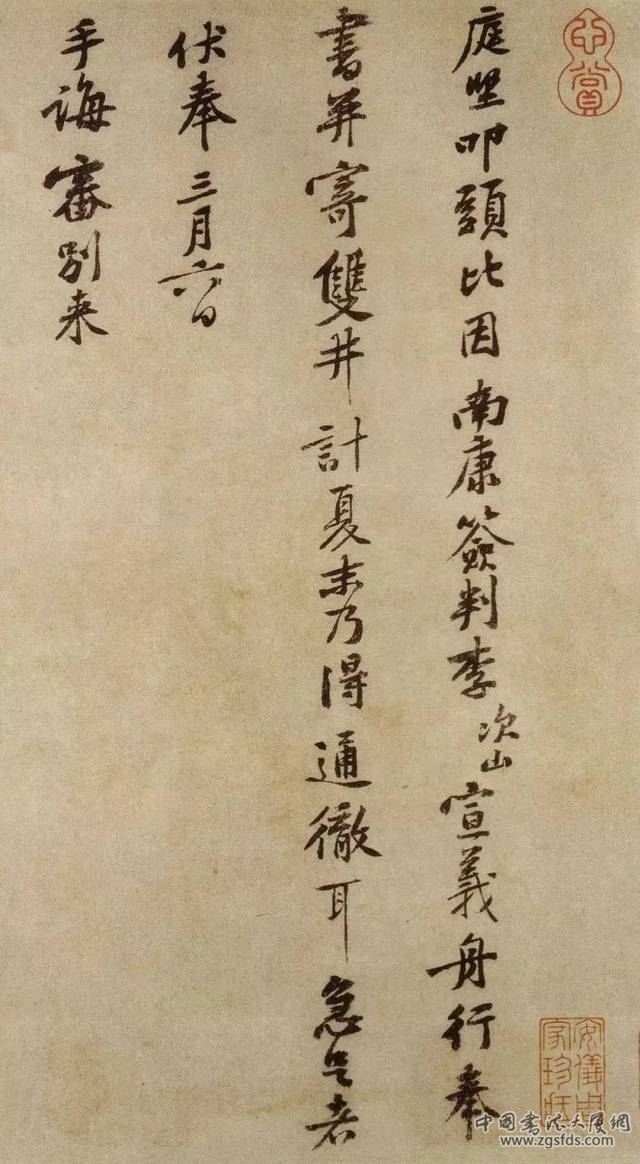 庭堅叩頭比因南康簽判李次山宣義舟行奉
書并寄雙井計夏末乃得通徹耳急足者
伏奉三月六日
手誨審別来
安儀周家珍藏
中國書法大厦網
www.zgsfds.com